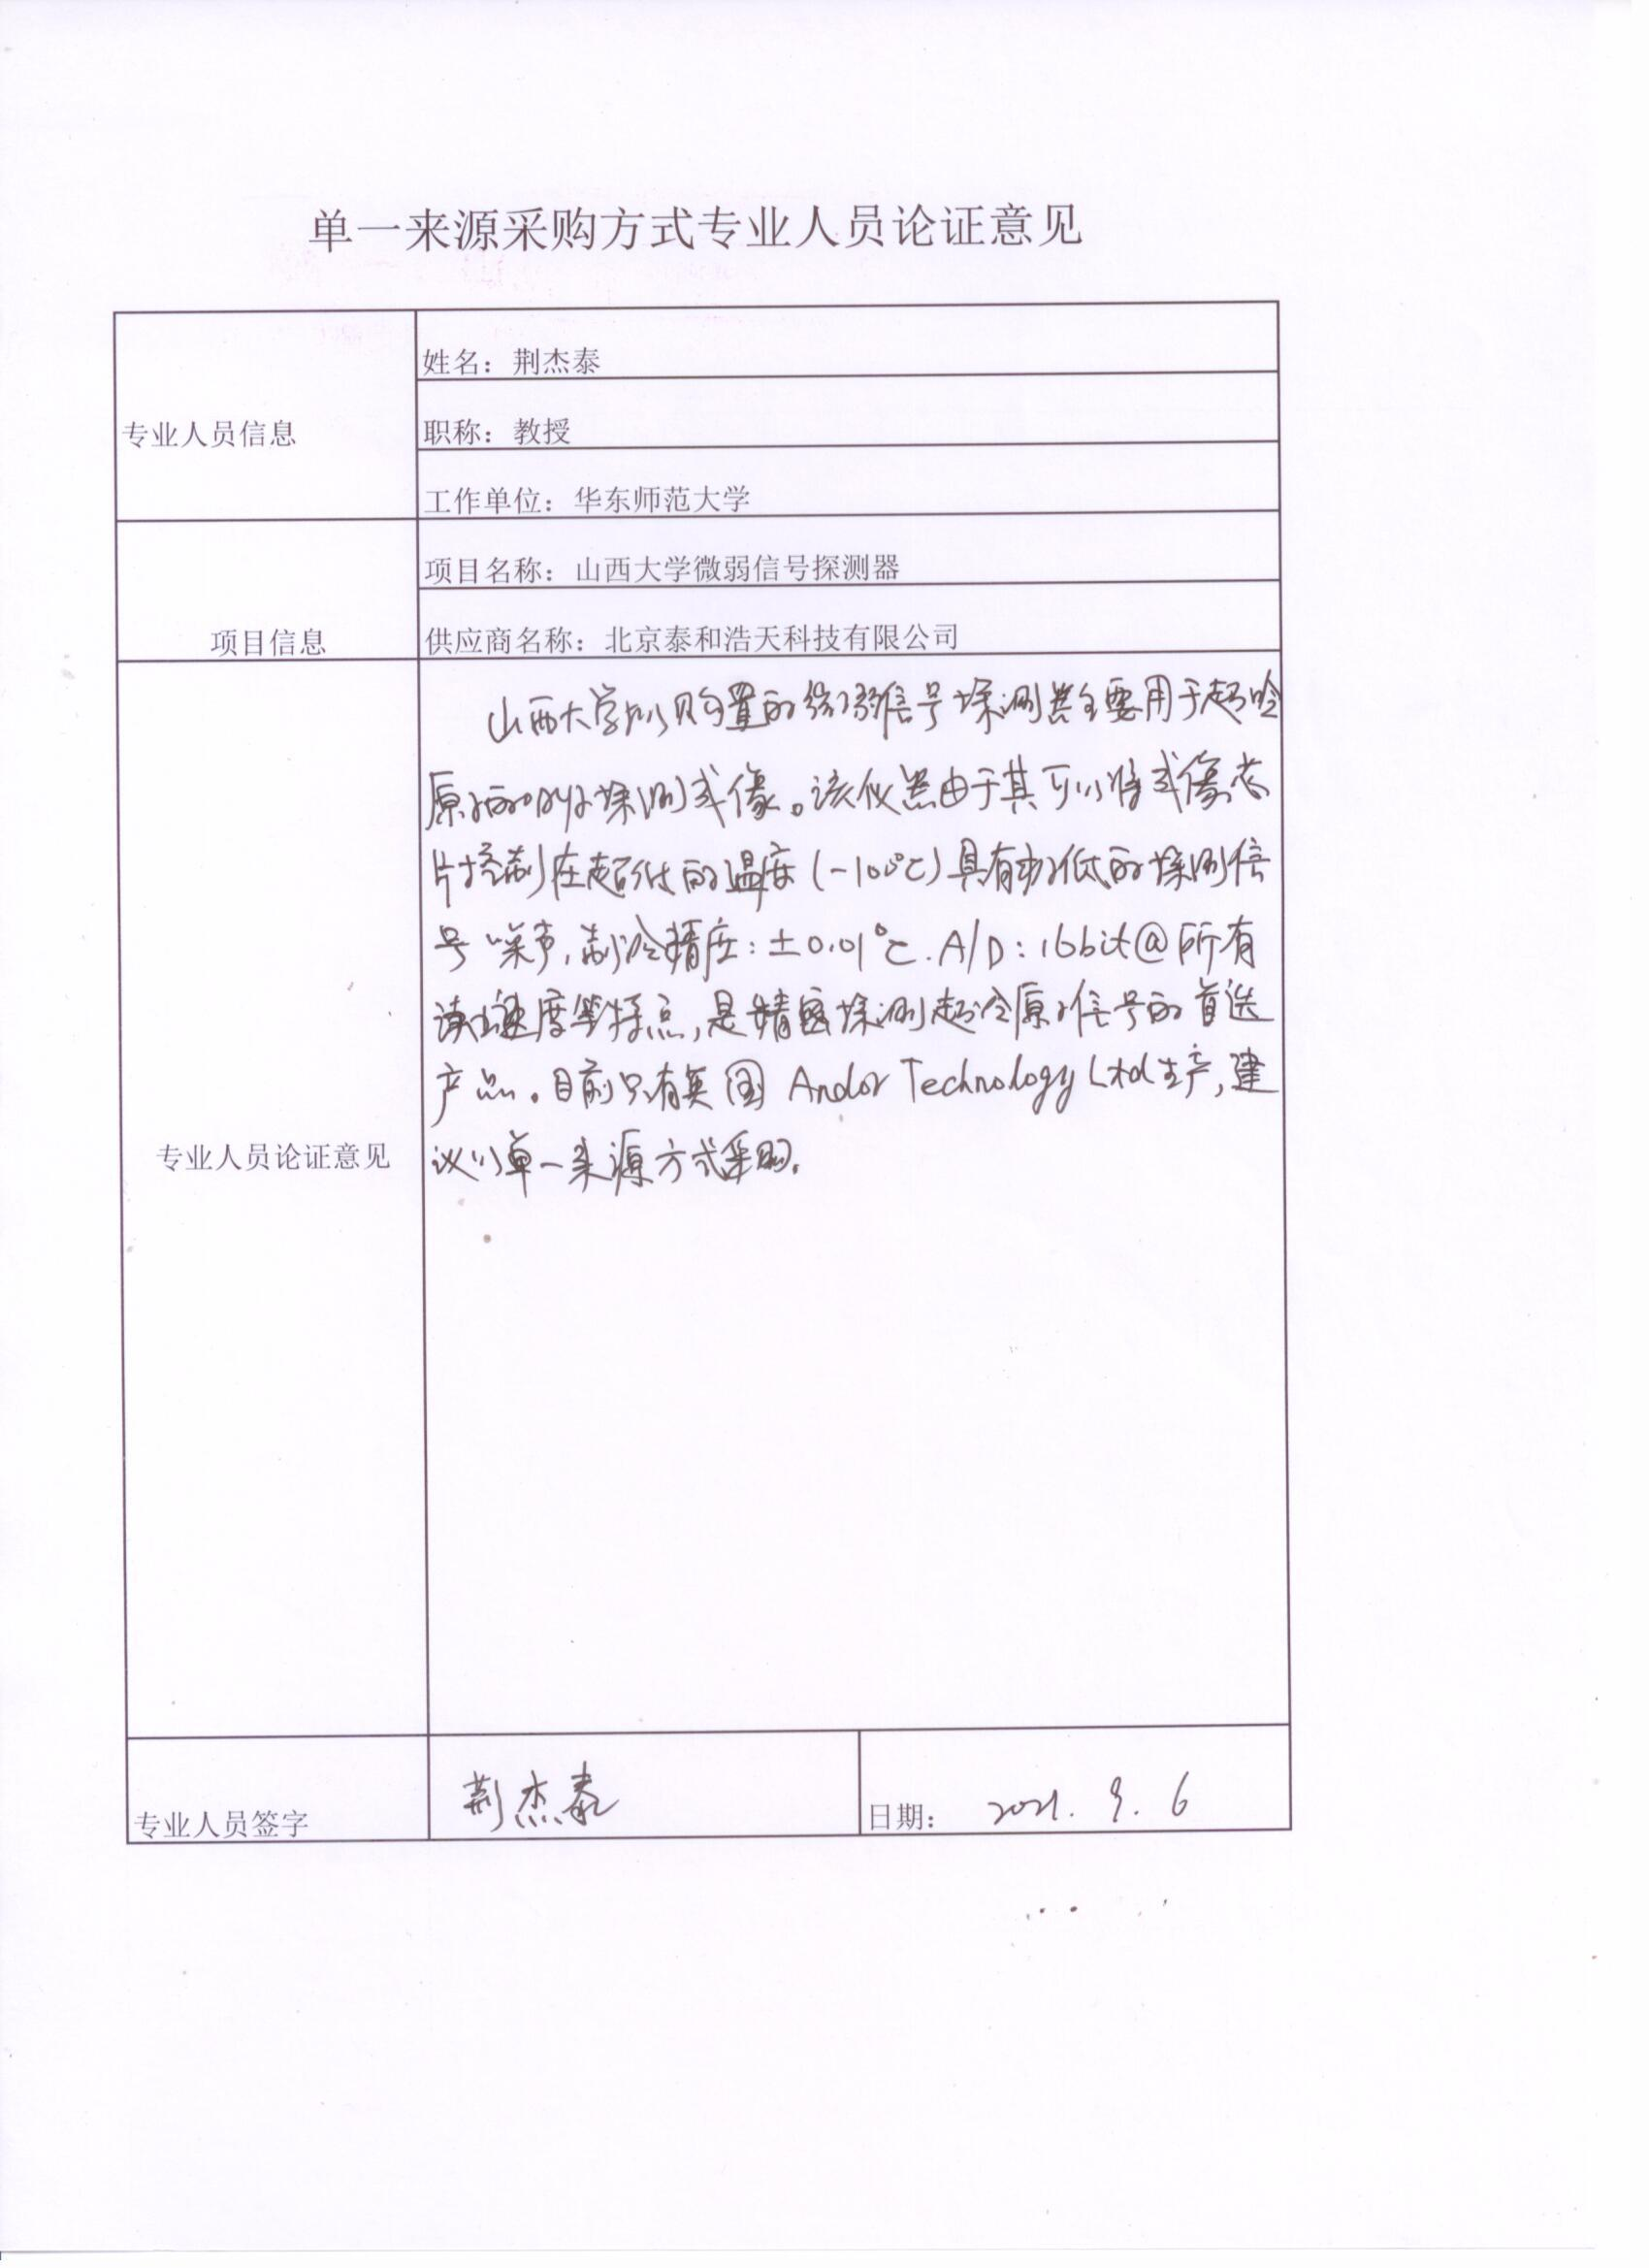 单一来源采购方式专业人员论证意见
专业人员信息
姓名：荆杰泰
职称：教授
工作单位：华东师范大学
项目信息
项目名称：山西大学微弱信号探测器
供应商名称：北京泰和浩天科技有限公司
专业人员论证意见
山西大学所购置的微弱信号探测器主要用于超冷
原子的吸收探测成像。该仪器由于其可以将成像芯
片控制在超低的温度（-100℃）具有较低的探测信
号噪声,制冷精度：±0.01℃.A/D：16bit@所有
读出速度等特点,是精密探测超冷原子信号的首选
产品。目前只有英国 Andor Technology Ltd生产,建
议以单一来源方式采购.
专业人员签字
荆杰泰
日期： 2021.9.6